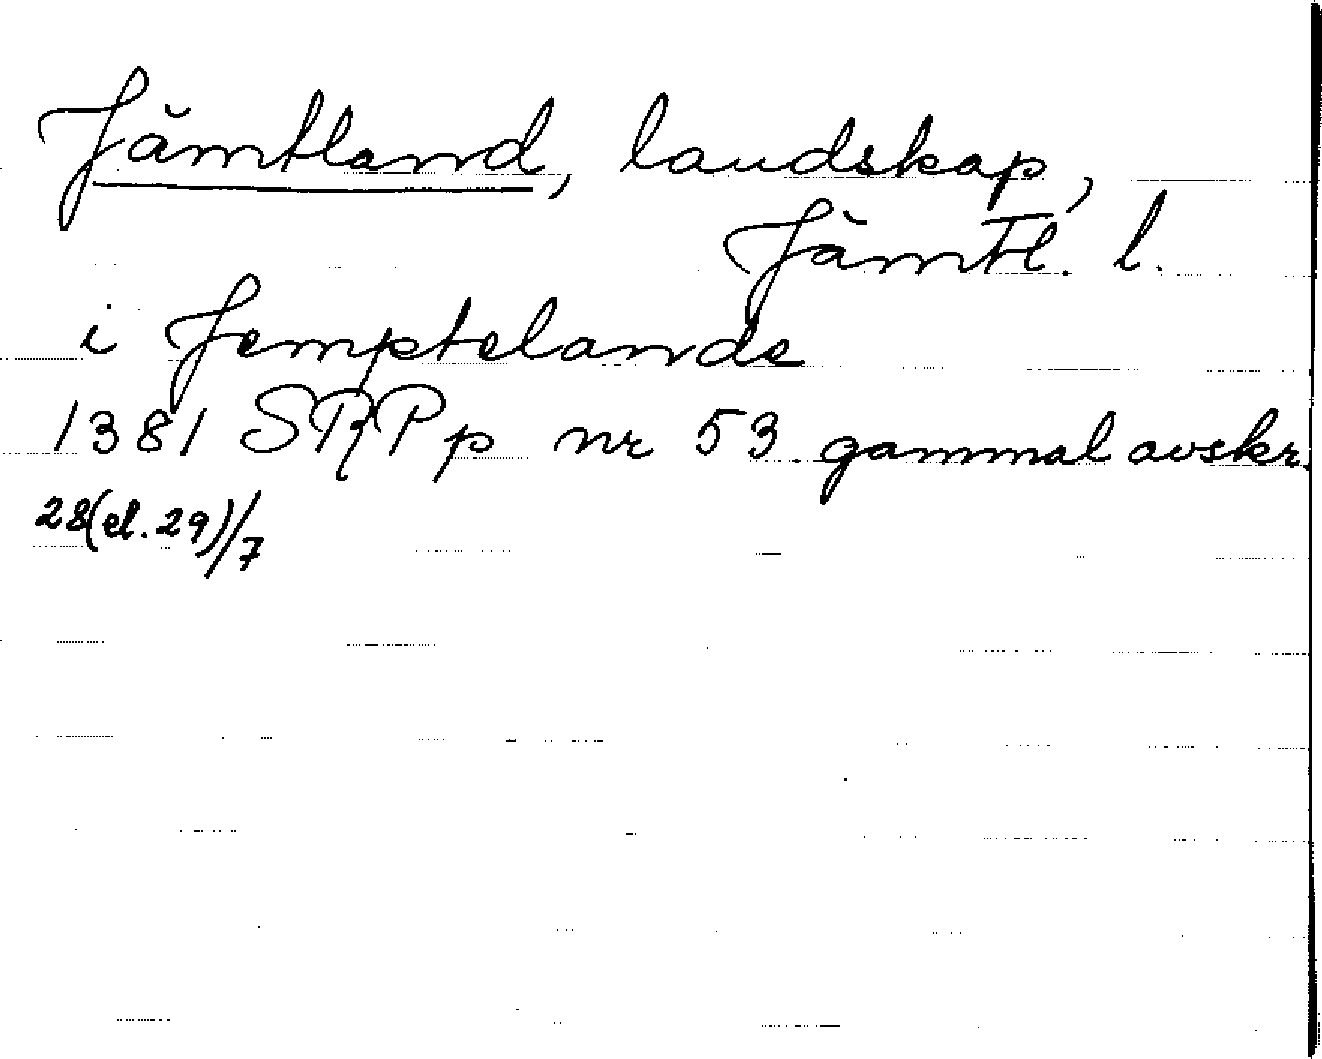 Jämtland, landskap,
Jämtl. l.
i Jemptelande
1381 SRPp nr 53 gammal avskr.
28(el. 29)/7